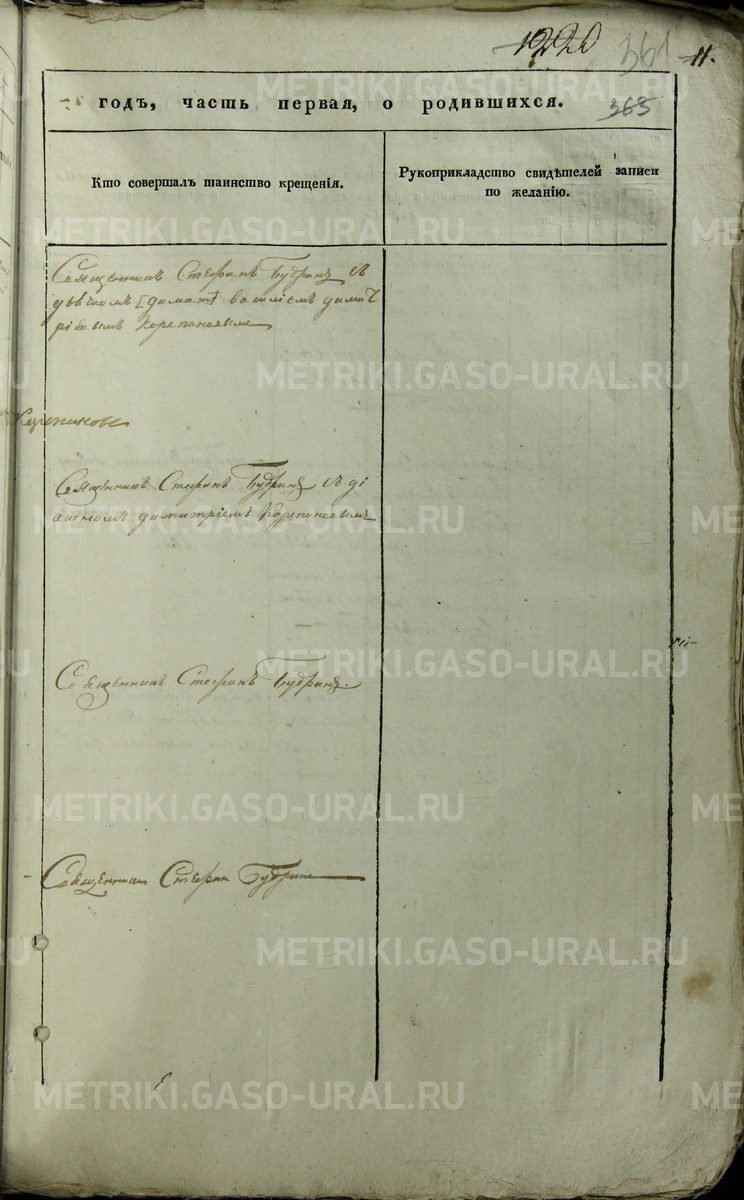 1220 361 11.
годъ, часть первая, о родившихся. 363
Кто совершалъ таинство крещенія.
Рукоприкладство свидѣтелей записи
по желанію.
Священникъ Стефанъ Будринъ съ
дьячкомъ василіемъ димит
ріевымъ Корепановымъ
Корепановъ
Священникъ Стефанъ Будринъ съ ді
акономъ димитріемъ Корепановымъ
Священникъ Стефанъ Будринъ.
Священникъ Стефан Будрин
METRIKI.GASO-URAL.RU